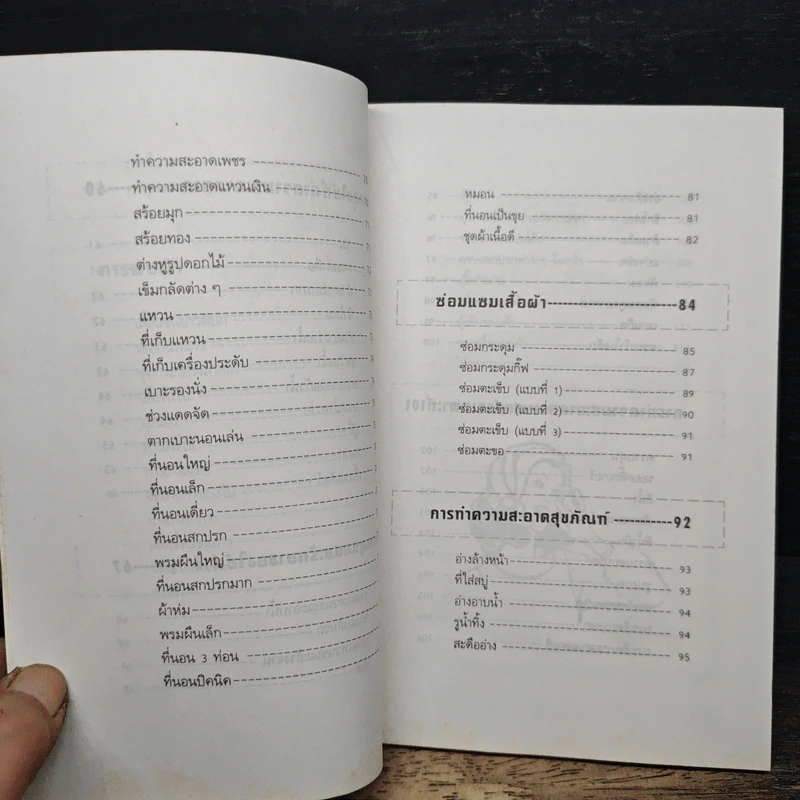 ทำความสะอาดเพชร
ทำความสะอาดแหวนเงิน
สร้อยมุก
สร้อยทอง
ต่างหูรูปดอกไม้
เข็มกลัดต่าง ๆ
แหวน
ที่เก็บแหวน
ที่เก็บเครื่องประดับ
เบาะรองนั่ง
ช่วงแดดจัด
ตากเบาะนอนเล่น
ที่นอนใหญ่
ที่นอนเล็ก
ที่นอนเดี่ยว
ที่นอนสกปรก
พรมผืนใหญ่
ที่นอนสกปรกมาก
ผ้าห่ม
พรมผืนเล็ก
ที่นอน 3 ท่อน
ที่นอนปิคนิค
หมอน 81
ที่นอนเป็นขุย 81
ชุดผ้าเนื้อดี 82
ซ่อมแซมเสื้อผ้า 84
ซ่อมกระดุม 85
ซ่อมกระดุมกิ๊ฟ 87
ซ่อมตะเข็บ (แบบที่ 1) 89
ซ่อมตะเข็บ (แบบที่ 2) 90
ซ่อมตะเข็บ (แบบที่ 3) 91
ซ่อมตะขอ 91
การทำความสะอาดสุขภัณฑ์ 92
อ่างล้างหน้า 93
ที่ใส่สบู่ 93
อ่างอาบน้ำ 94
รูน้ำทิ้ง 94
สะดืออ่าง 95